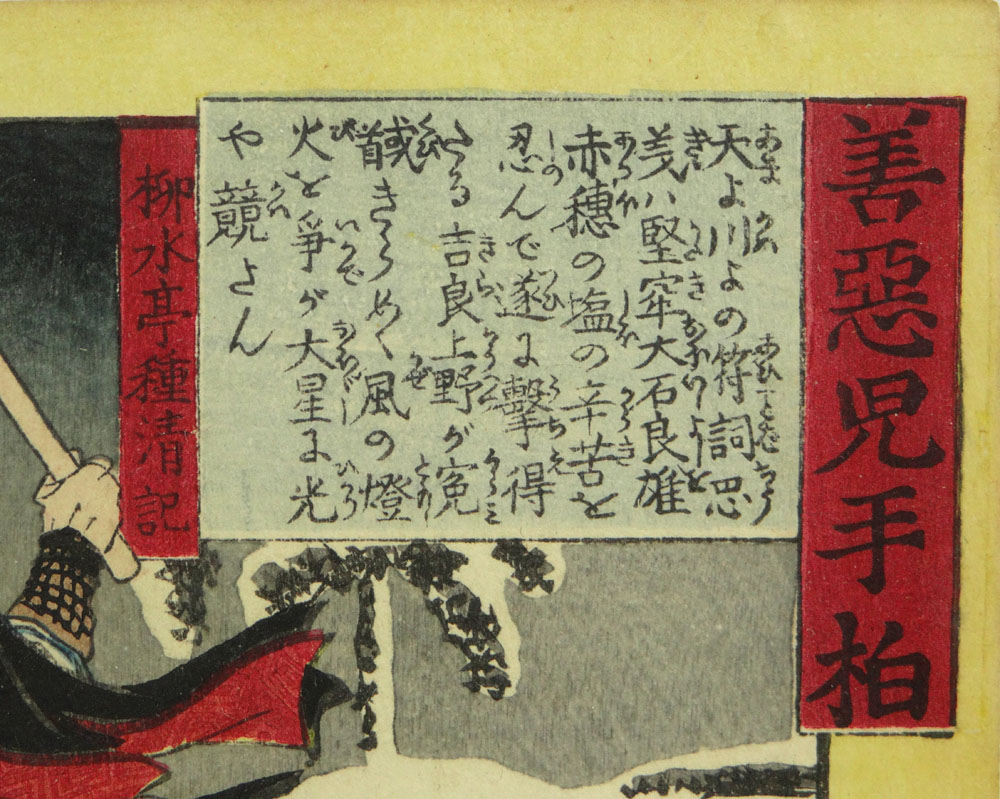 善惡児手柏
天よ川よの符詞忠
義ハ堅牢大石良雄
赤穗の塩の辛苦を
忍んで遂に擊得
たる吉良上野が寃
馘きらめく風の燈
火と爭が大星に光
や競さん
柳水亭種清記